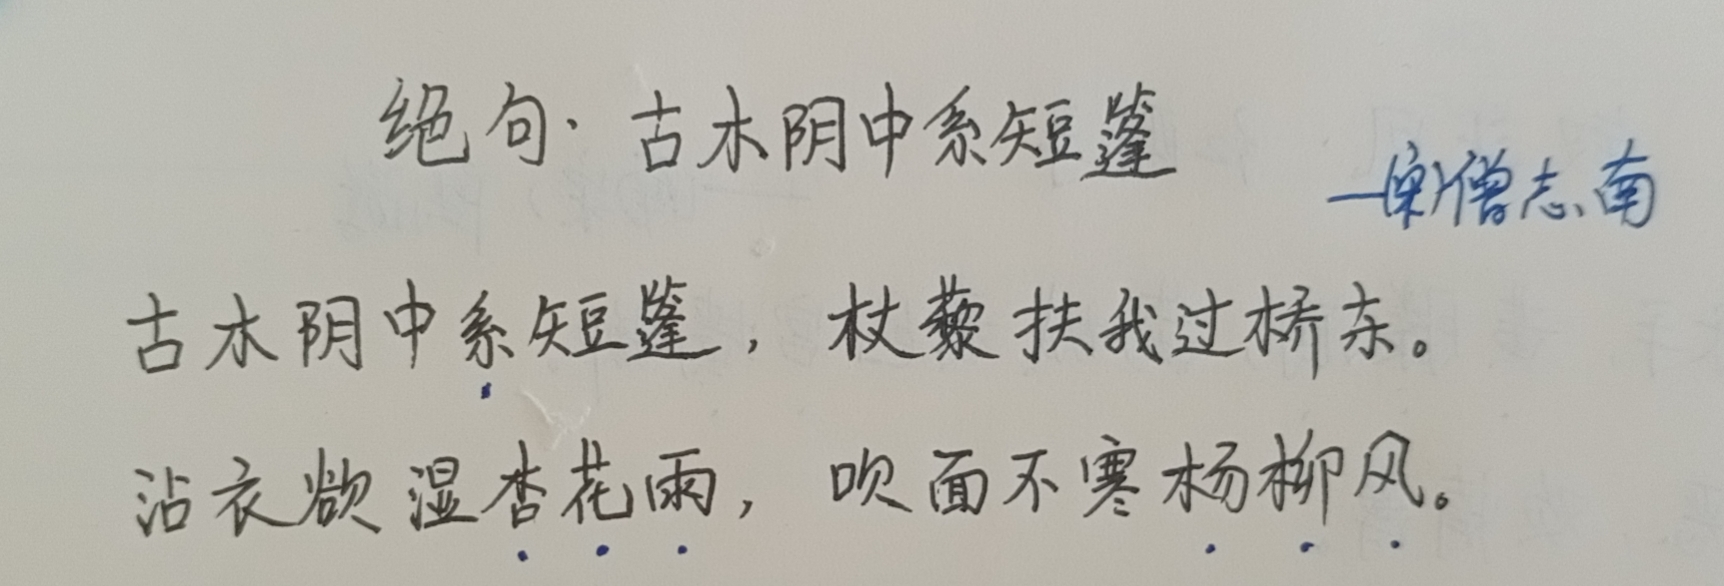 绝句·古木阴中系短篷
——(宋)僧志南
古木阴中系短篷，杖藜扶我过桥东。
沾衣欲湿杏花雨，吹面不寒杨柳风。